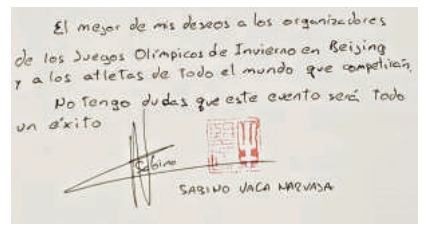 El mejor de mis deseos a los organizadores
de los Juegos Olímpicos de Invierno en Beijing
y a los atletas de todo el mundo que competirán.
No tengo dudas que este evento será todo
un éxito
Sabino
SABINO VACA NARVAJA